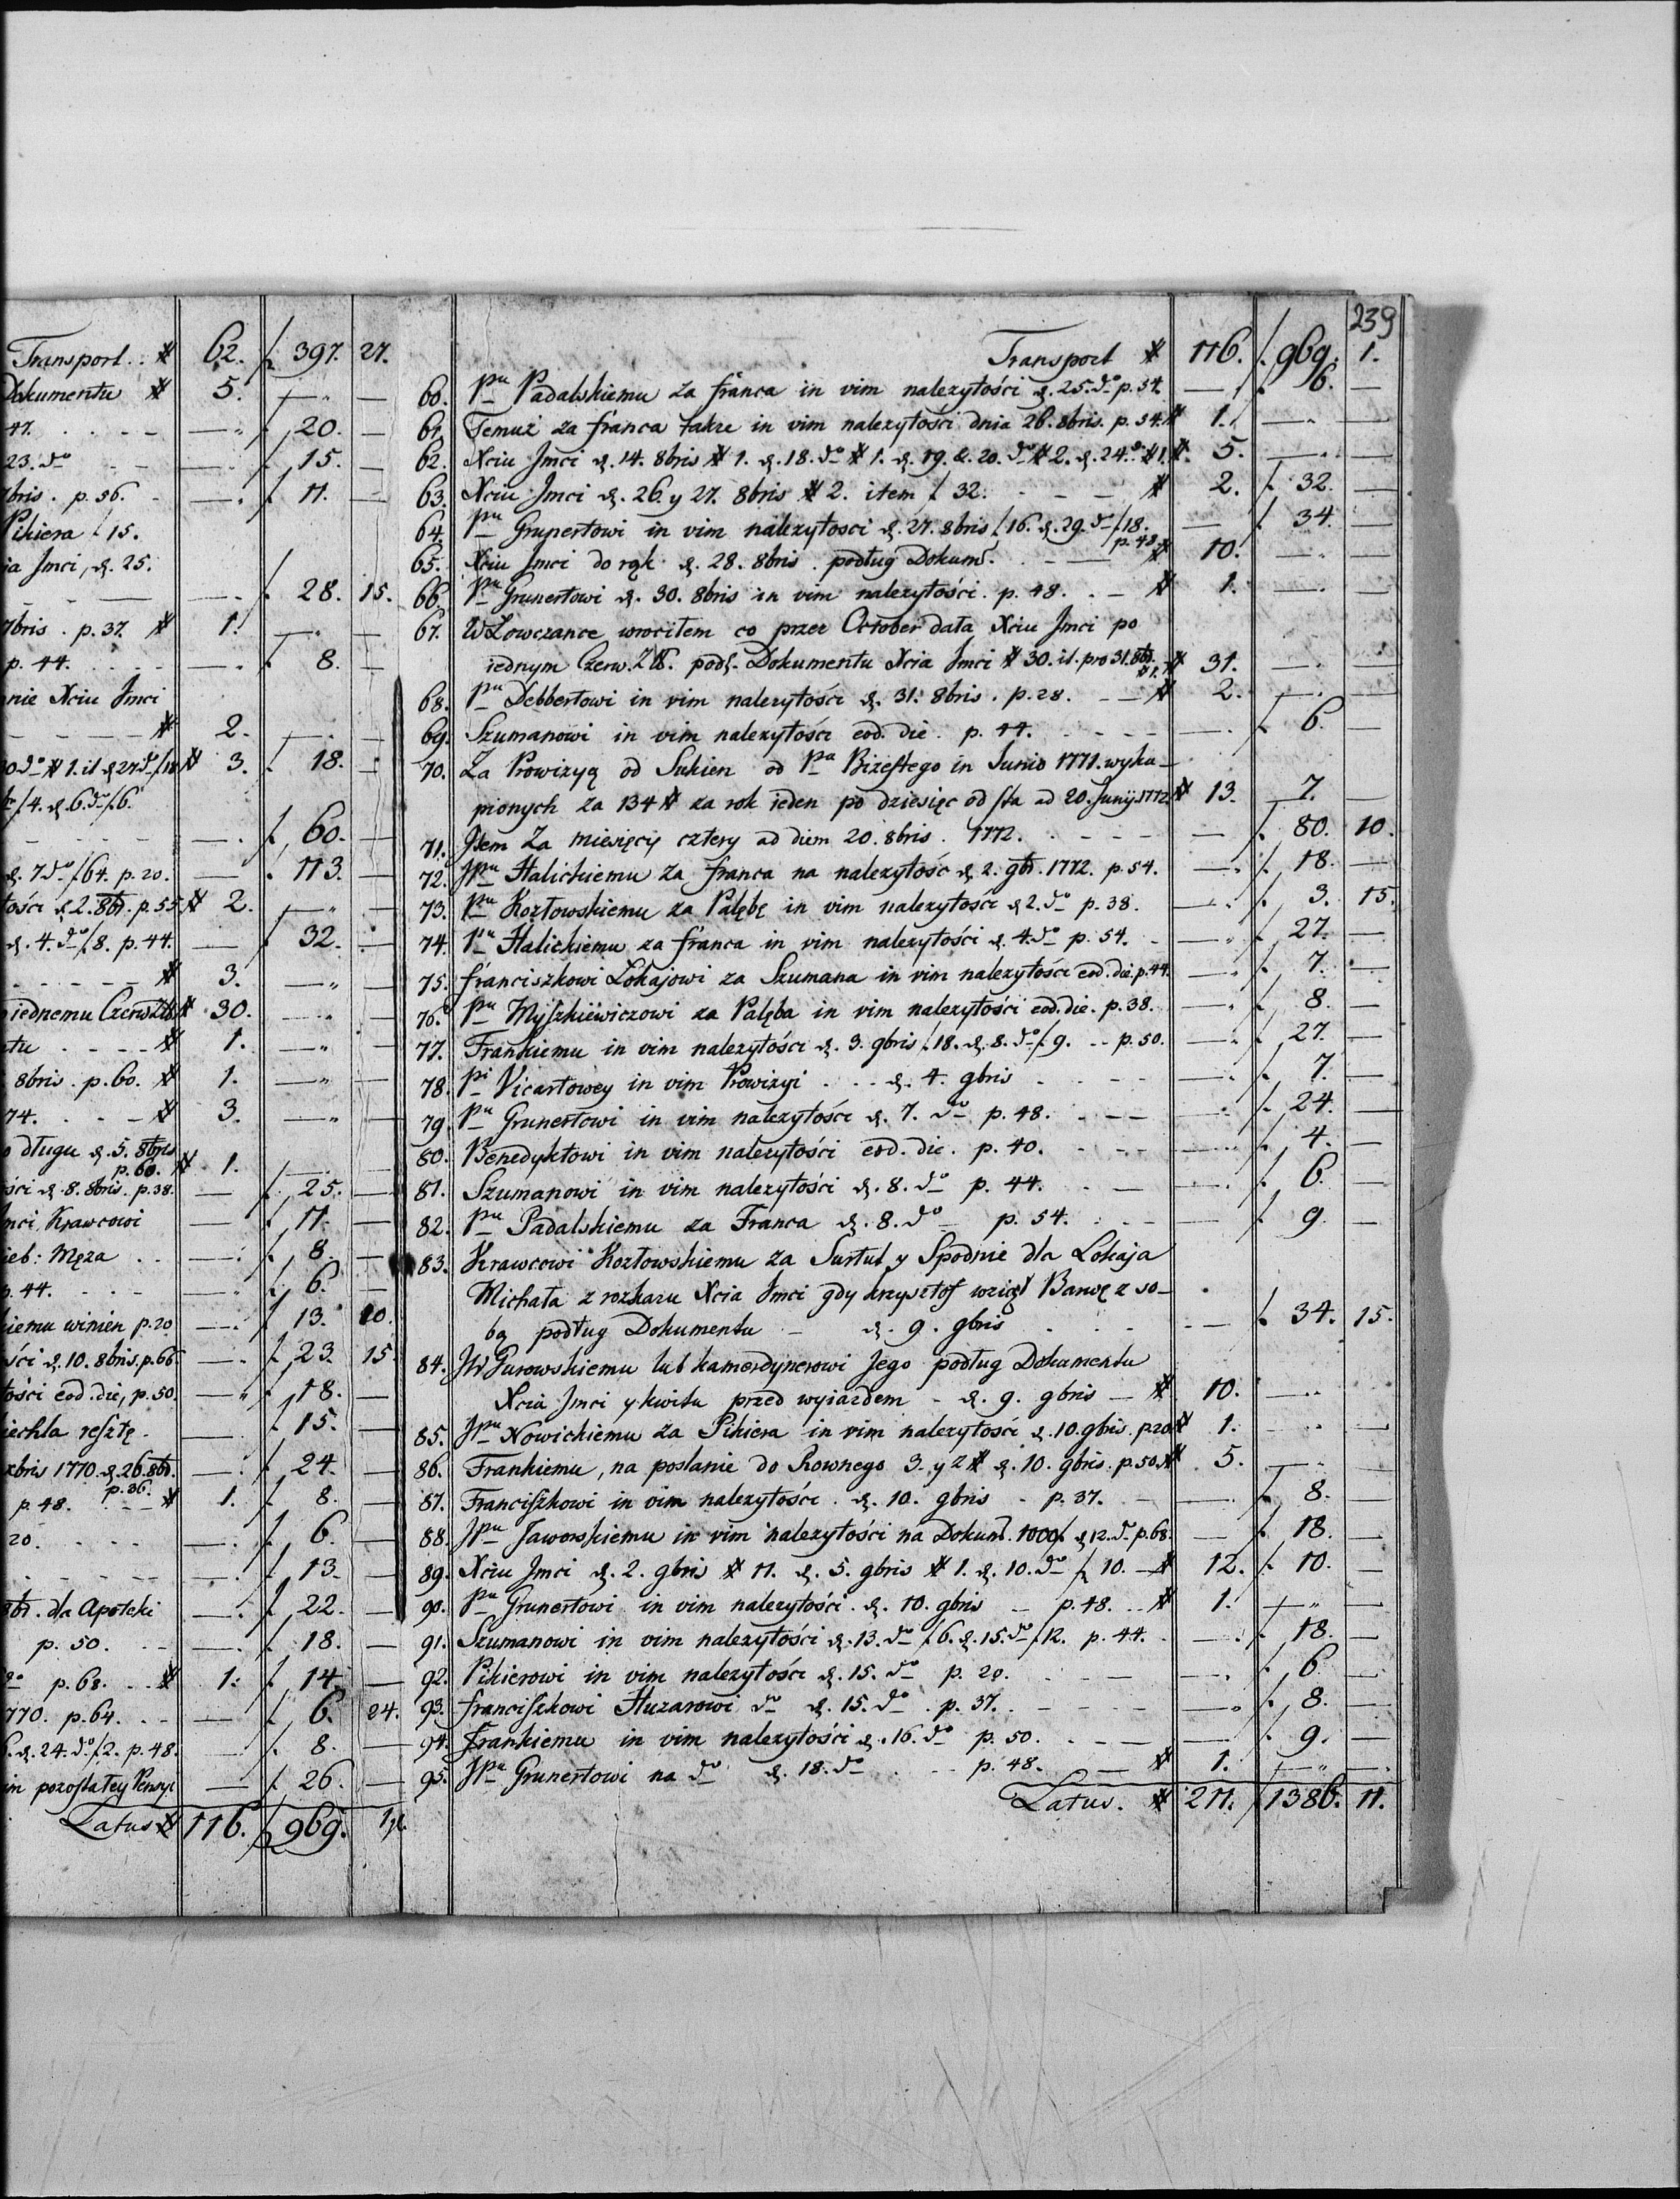 Transport.. # 62. f 397. 27.
Dokumentu # 5. — —
47. — f 20. —
23. do — f 15. —
7bris. p. 56. — f 11. —
Pikiera f 15.
ia Jmci, d. 25.
— f 28. 15.
7bris. p. 37. # 1. — —
p. 44. — f 8. —
nie Xciu Jmci
# 2. — —
# 1. it d 27 do f 18 # 3. f 18. —
f 4. d. 6. do f. 6.
— f 60. —
d. 7 do f 64. p. 20. — f 113. —
tości d 2. 8br. p. 55 # 2. — —
d. 4. do f 8. p. 44. — f 32. —
# 3. — —
iednemu Czerw Zł # 30. — —
tu # 1. — —
8bris. p. 60. # 1. — —
74. # 3. — —
o długu d. 5. 8bris
p. 60. # 1. — —
ści d. 8. 8bris. p. 38. — f 25. —
mci Krawcowi — f 11. —
ieb: Męza — f 8. —
p. 44. — f 6. —
kiemu winien p. 20 — f 13. 20.
ści d. 10. 8bris. p. 66 — f 23. 15.
tości eod. die, p. 50. — f 18. —
iechla resztę — f 15. —
xbris 1770. d. 26. 8br. — f 24. —
p. 36.
p. 48. # 1. f 8. —
20. — f 6. —
— f 13. —
8br. dla Apteki — f 22. —
p. 50. — f 18. —
do p. 68. # 1. f 14. —
770. p. 64. — f 6. 24.
d. 24. do f 2. p. 48. — f 8. —
im pozostałey Pensyi — f 26. —
Latus # 116. f 969. 1.
239
Transport # 116. f. 969. 1.
60. Pu Padalskiemu za franca in vim nalezytości d. 25. do p. 54. — f 6. —
61. Temuż za franca takze in vim nalezytości dnia 26. 8bris. p. 54. # 1. — —
62. Xciu Jmci d. 14. 8bris # 1. d. 18. do # 1. d. 19. & 20. do # 2. d. 24. do # 1. # 5. — —
63. Xciu Jmci d. 26. y 27. 8bris # 2. item f 32. # 2. f 32. —
64. Pu Grunertowi in vim nalezytosci d. 27. 8bris f 16. d. 29. do f 18. — f 34. —
p. 48.
65. Xciu Jmci do rąk d. 28. 8bris. podług Dokumt. # 10. — —
66. Pu Grunertowi d. 30. 8bris in vim nalezytości. p. 48. # 1. — —
67. W Łowczance wrocitem co przez October data Xciu Jmci po
iednym Czerw. Zł. podł. Dokumentu Xcia Jmci # 30. it. pro 31. 8br. # 1. # 31. — —
68. Pu Debbertowi in vim nalezytości d. 31. 8bris. p. 28. # 2. — —
69. Szumanowi in vim nalezytości eod. die. p. 44. — f 6. —
70. Za Prowizyą od Sukien od Pa Bizestego in Junio 1771. wyku-
pionych za 134 # za rok ieden po dziesięc od sta ad 20. Junij 1772. # 13. 7. —
71. Item Za miesięcy cztery ad diem 20. 8bris. 1772. — f 80. 10.
72. JPu Halickiemu za franca na nalezytośc d. 2. 9br. 1772. p. 54. — f 18. —
73. Pu Kozłowskiemu za Palębę in vim nalezytości d 2. do p. 38. — f 3. 15.
74. Pu Halickiemu za franca in vim nalezytości d. 4. do p. 54. — f 27. —
75. franciszkowi Lokajowi za Szumana in vim nalezytości eod. die. p. 44. — f 7. —
76. Pu Myszkiewiczowi za Palęba in vim nalezytości eod. die. p. 38. — f 8. —
77. Frankiemu in vim nalezytości d. 3. 9bris f 18. d. 8. do f 9. p. 50. — f 27. —
78. Pi Vicartowey in vim Prowizyi d. 4. 9bris — f 7. —
79. Pu Grunertowi in vim nalezytości d. 7. do p. 48. — f 24. —
80. Benedyktowi in vim nalezytości eod. die. p. 40. — f 4. —
81. Szumanowi in vim nalezytości d. 8. do p. 44. — f 6. —
82. Pu Padalskiemu za Franca d. 8. do p. 54. — f 9. —
83. Krawcowi Kozłowskiemu za Surtut y Spodnie dla Lokaja
Michała z rozkazu Xcia Jmci gdy krzysztof wziął Barwę z so-
bą podług Dokumentu d. 9. 9bris — f 34. 15.
84. JW Gurowskiemu lub kamerdynerowi Jego podług Dokumentu
Xcia Jmci y kwitu przed wyiazdem d. 9. 9bris # 10. — —
85. JPu Nowickiemu za Pikiera in vim nalezytości d. 10. 9bris. p. 20. # 1. — —
86. Frankiemu, na posłanie do Rownego 3. y 2 # d. 10. 9bris. p. 50. # 5. — —
87. Franciszkowi in vim nalezytości d. 10. 9bris p. 37. — f 8. —
88. JPu Jaworskiemu in vim nalezytości na Dokumt. 1000 f d 12. do p. 68. — f 18. —
89. Xciu Jmci d. 2. 9bris # 11. d. 5. 9bris # 1. d. 10. do f 10. # 12. f 10. —
90. Pu Grunertowi in vim nalezytości. d. 10. 9bris p. 48. # 1. — —
91. Szumanowi in vim nalezytości d. 13. do f 6. d. 15. do f 12. p. 44. — f 18. —
92. Pikierowi in vim nalezytości d. 15. do p. 20. — f 6. —
93. franciszkowi Huzarowi do d. 15. do. p. 37. — f 8. —
94. Frankiemu in vim nalezytości d. 16. do p. 50. — f 9. —
95. JPu Grunertowi na do d. 18. do p. 48. # 1. — —
Latus. # 211. f 1386. 11.